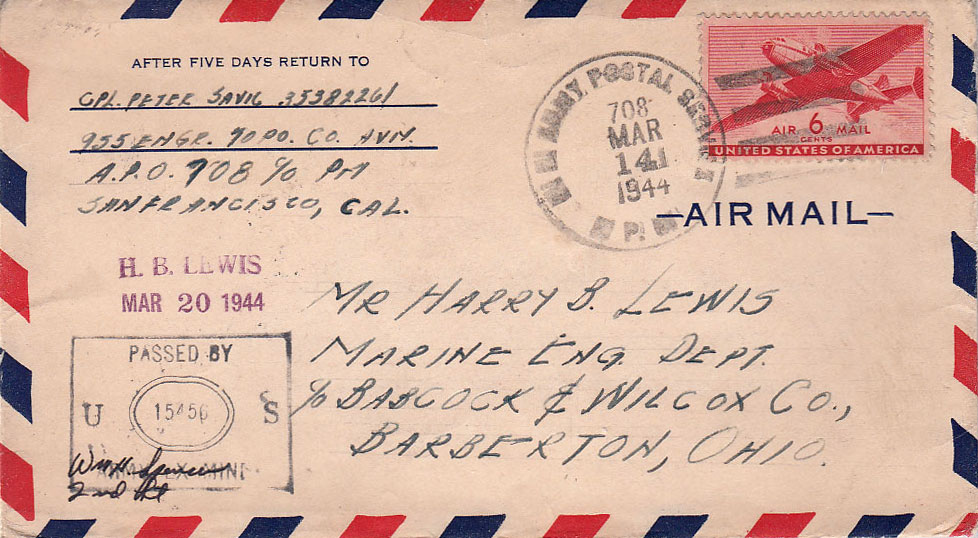 AFTER FIVE DAYS RETURN TO
CPL. PETER SAVIC 35382261
955 ENGR. TOPO. CO. AVN.
A.P.O. 708 c/o PM
SAN FRANCISCO, CAL.
ARMY POSTAL SERVICE
708
MAR
14
1944
A.P.
AIR 6 MAIL
CENTS
UNITED STATES OF AMERICA
—AIR MAIL—
H. B. LEWIS
MAR 20 1944
PASSED BY
U 15456 S
ARMY EXAMINER
2nd Lt
MR HARRY B. LEWIS
MARINE ENG. DEPT.
c/o BABCOCK & WILCOX CO.,
BARBERTON, OHIO.